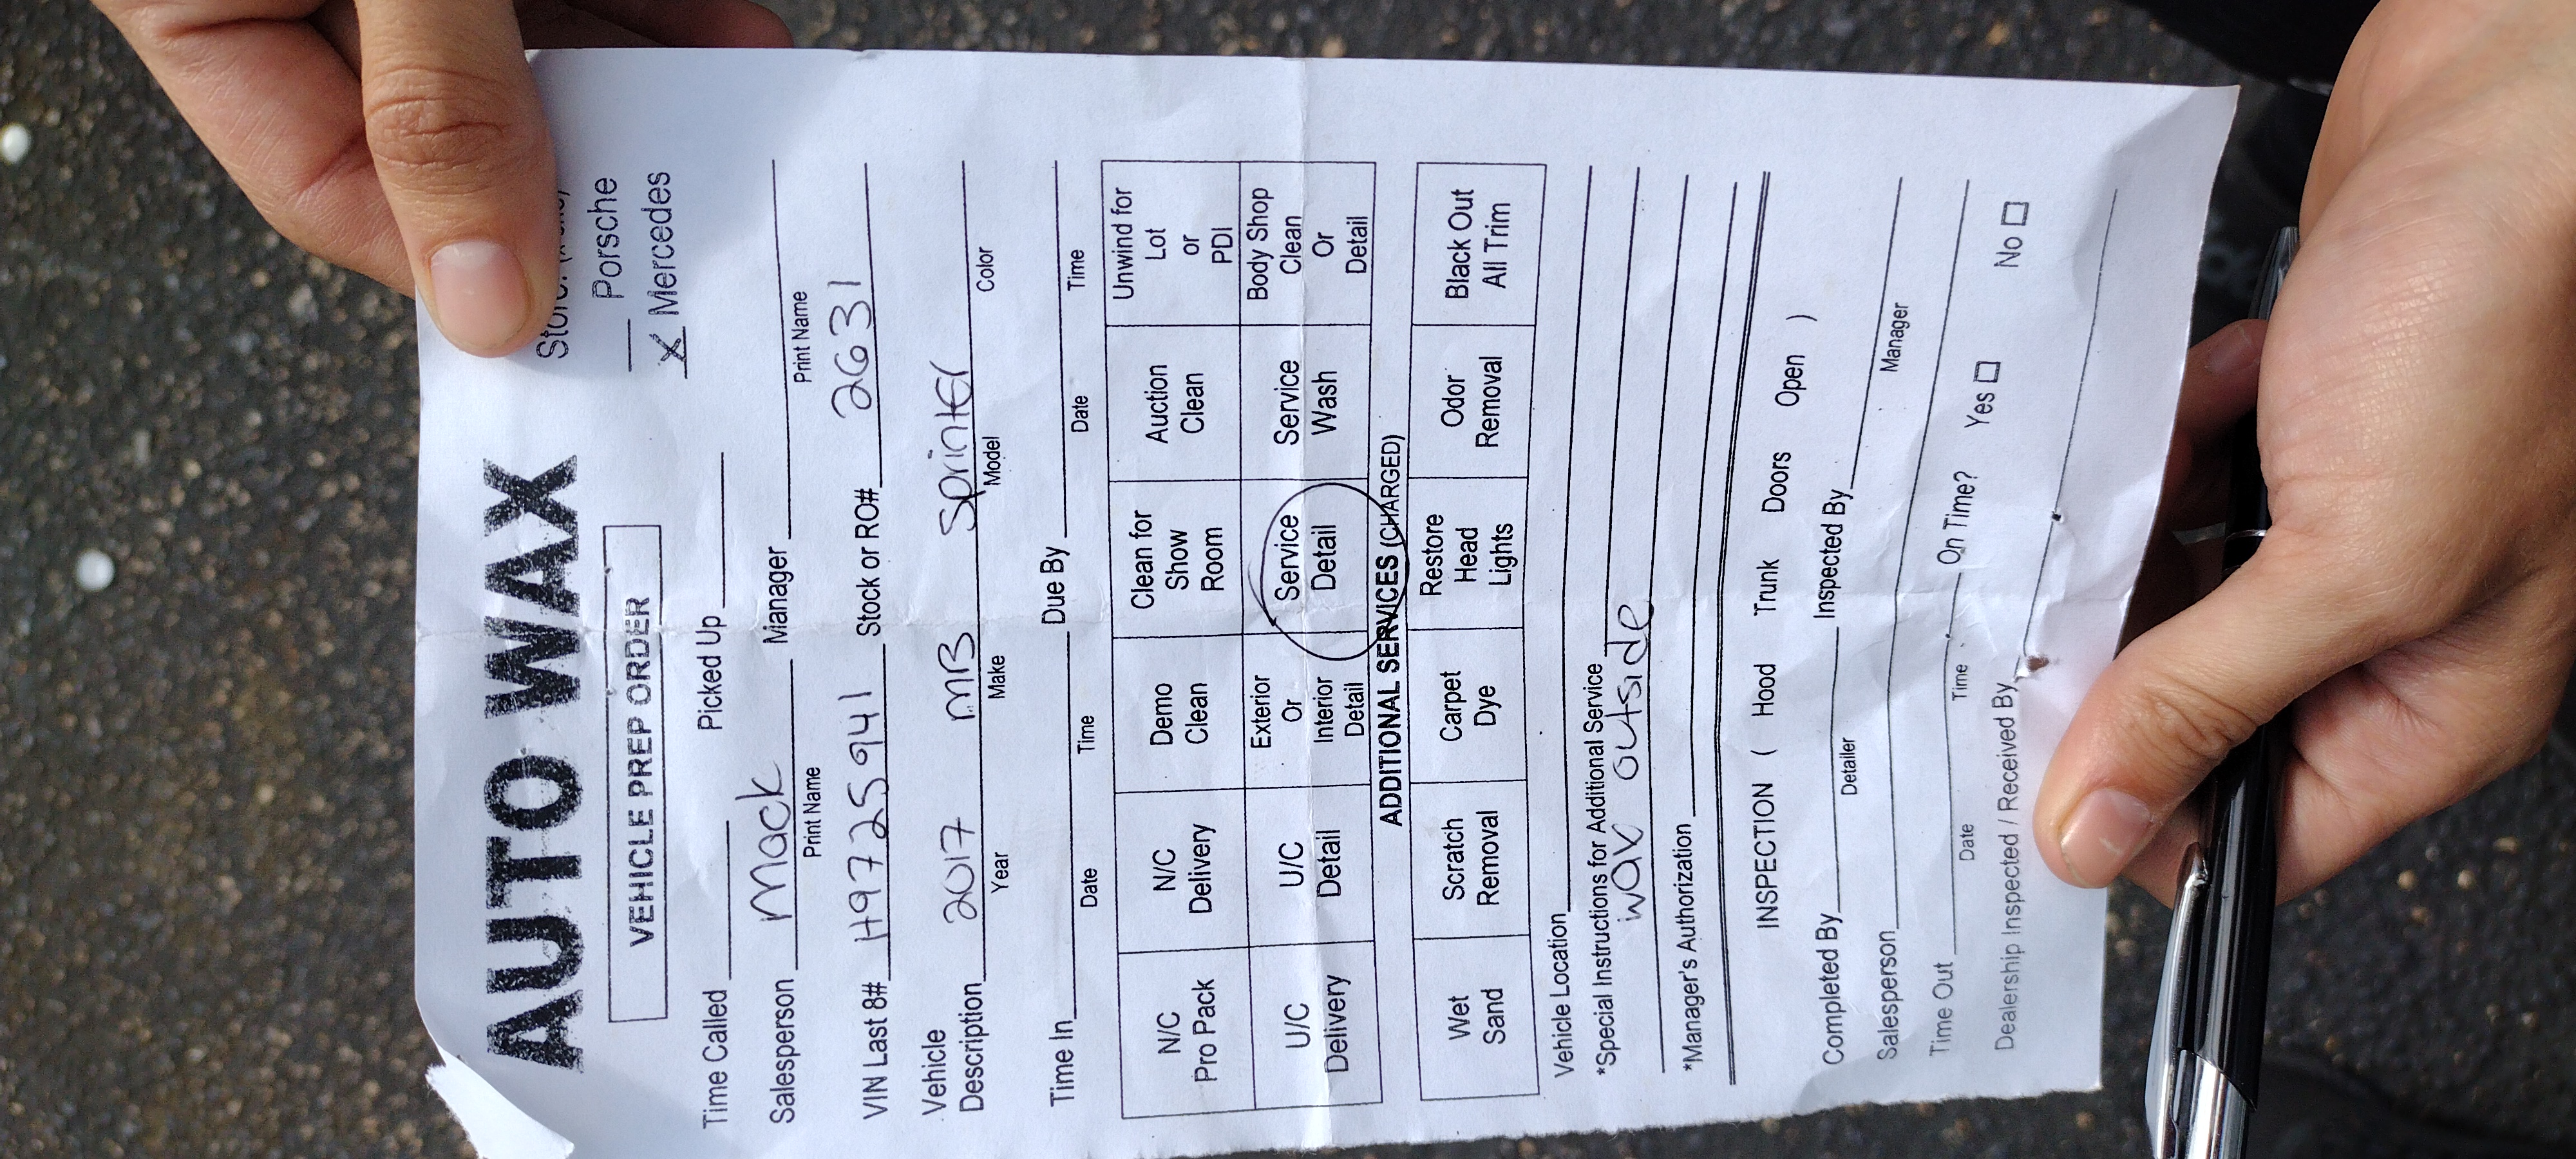 AUTO WAX
VEHICLE PREP ORDER
Porsche
X Mercedes
Time Called Picked Up
Salesperson Mack Manager
Print Name Print Name
VIN Last 8# H9725941 Stock or RO# 2631
Vehicle
Description 2017 MB Sprinter
Year Make Model Color
Time In Due By
Date Time Date Time
N/C Pro Pack N/C Delivery Demo Clean Clean for Show Room Auction Clean Unwind for Lot or PDI
U/C Delivery U/C Detail Exterior Or Interior Detail Service Detail Service Wash Body Shop Clean Or Detail
ADDITIONAL SERVICES (CHARGED)
Wet Sand Scratch Removal Carpet Dye Restore Head Lights Odor Removal Black Out All Trim
Vehicle Location
*Special Instructions for Additional Service
wax outside
*Manager's Authorization
INSPECTION ( Hood Trunk Doors Open )
Completed By Inspected By
Detailer Manager
Salesperson
Time Out On Time? Yes No
Date Time
Dealership Inspected / Received By